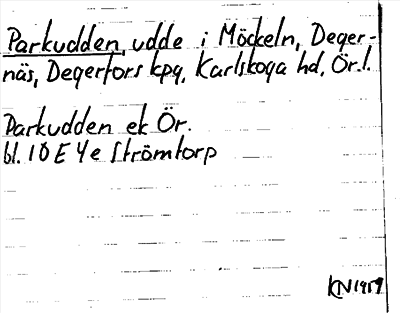 Parkudden, udde i Möckeln, Deger-
näs, Degerfors kpg, Karlskoga hd, Ör. l.
Parkudden ek Ör.
bl. 10 E 4 e Strömtorp